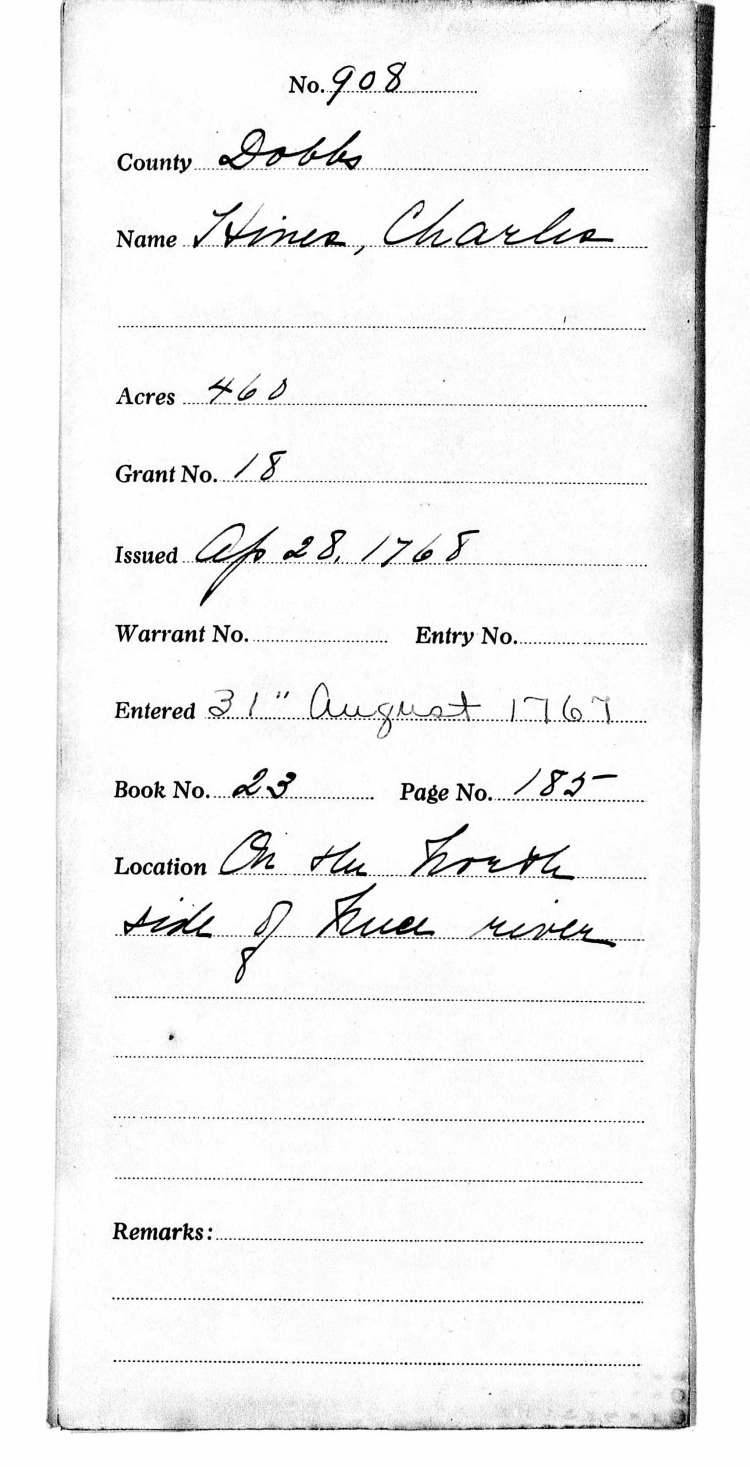 No. 908
County Dobbs
Name Hines, Charles
Acres 460
Grant No. 18
Issued Ap 28, 1768
Warrant No. Entry No.
Entered 31" August 1767
Book No. 23 Page No. 185
Location On the North
side of Nuce river
Remarks: